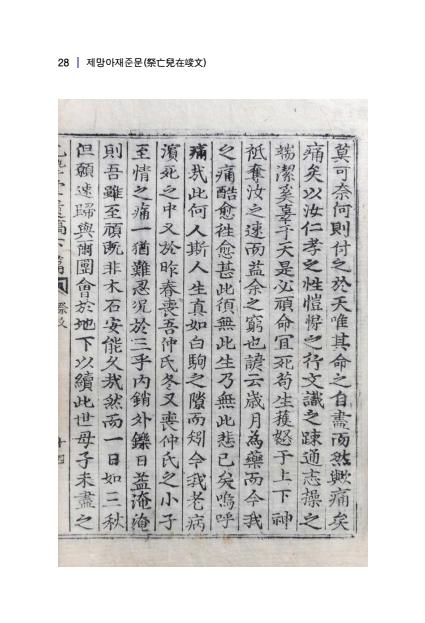 28 | 제망아재준문(祭亡兒在峻文)
莫可奈何則付之於天唯其命之自盡而然歟痛矣
痛矣以汝仁孝之性愷悌之行文識之疎通志操之
端潔奚辜于天是必頑命宜死苟生獲怒于上下神
祗奪汝之速而益余之窮也諺云歲月為藥而今我
之痛酷愈徃愈甚此須無此生乃無此悲已矣嗚呼
痛哉此何人斯人生真如白駒之隙而矧今我老病
濱死之中又於昨春喪吾仲氏冬又喪仲氏之小子
至情之痛一猶難忍况於三乎內銷外鑠日益淹淹
則吾雖至頑旣非木石安能久哉然而一日如三秋
但願速歸與爾團會於地下以續此世母子未盡之
祭文
十四